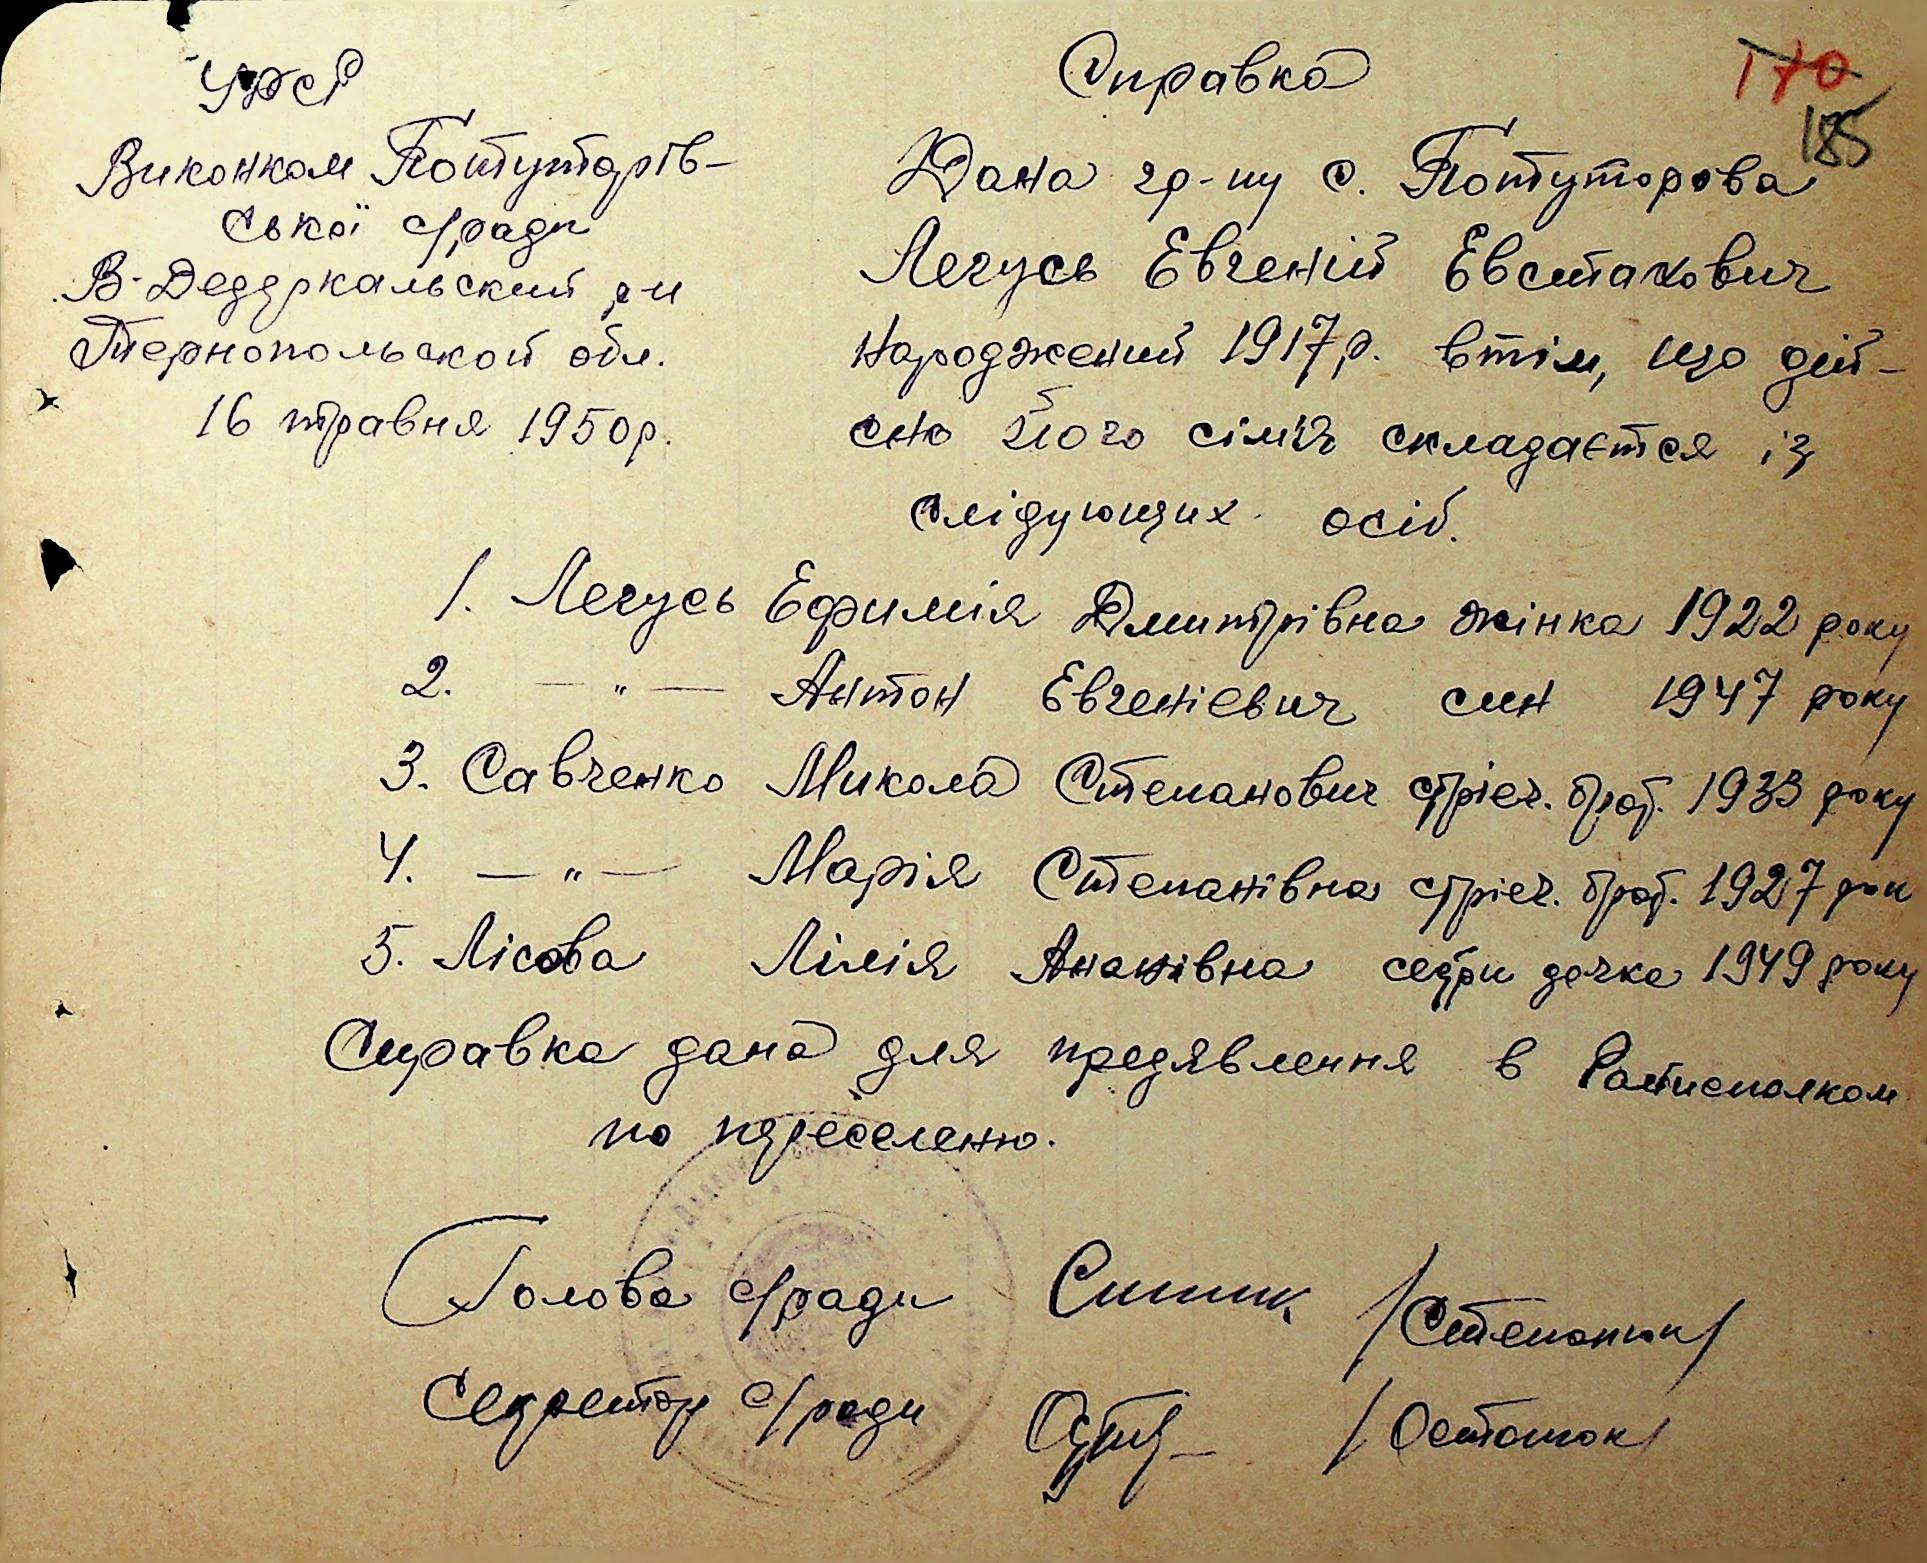 УРСР
Виконком Потуторів-
ської с/ради
В-Дедеркальский р-н
Тернопольской обл.
16 травня 1950р.
Справка
170
185
Дана гр-ну с. Потуторова
Легусь Евгеній Евстахович
народжений 1917р. втім, що дій-
сно його сімія складаєтся із
слідующих осіб.
1. Легусь Ефимія Дмитрівна жінка 1922 року
2. — " — Антон Евгенієвич син 1947 року
3. Савченко Микола Степанович стріеч. брат. 1933 року
4. — " — Марія Степанівна стріеч. брат. 1927 рок
5. Лісова Лілія Ананівна сестри дочка 1949 року
Справка дана для предявлення в Райисполком
по переселеню.
Голова с/ради /Степанюк/
Секретар с/ради /Остапюк/